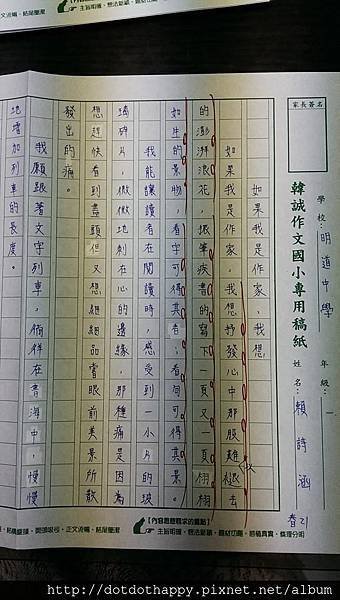 家長簽名
韓誠作文國小專用稿紙
學校：明道中學 年級：一 姓名：賴詩涵
春21
如果我是作家，我想
如果我是作家，我想抒發心中那股難褪去
的澎湃浪花，振筆疾書的寫下一頁又一頁栩栩
如生的景物，看字可得其音；看句可得其景。
我能讓讀者在閱讀時，感受到一小片玻
璃碎片，微微刺在心的邊緣，那種痛是因為
想趕快看到盡頭，但又想細細品嘗眼前美景所散
發出的痛。
我願跟著文字列車，徜徉在書海中，慢慢
地增加列車的長度。
http://dotdothappy.pixnet.net/album